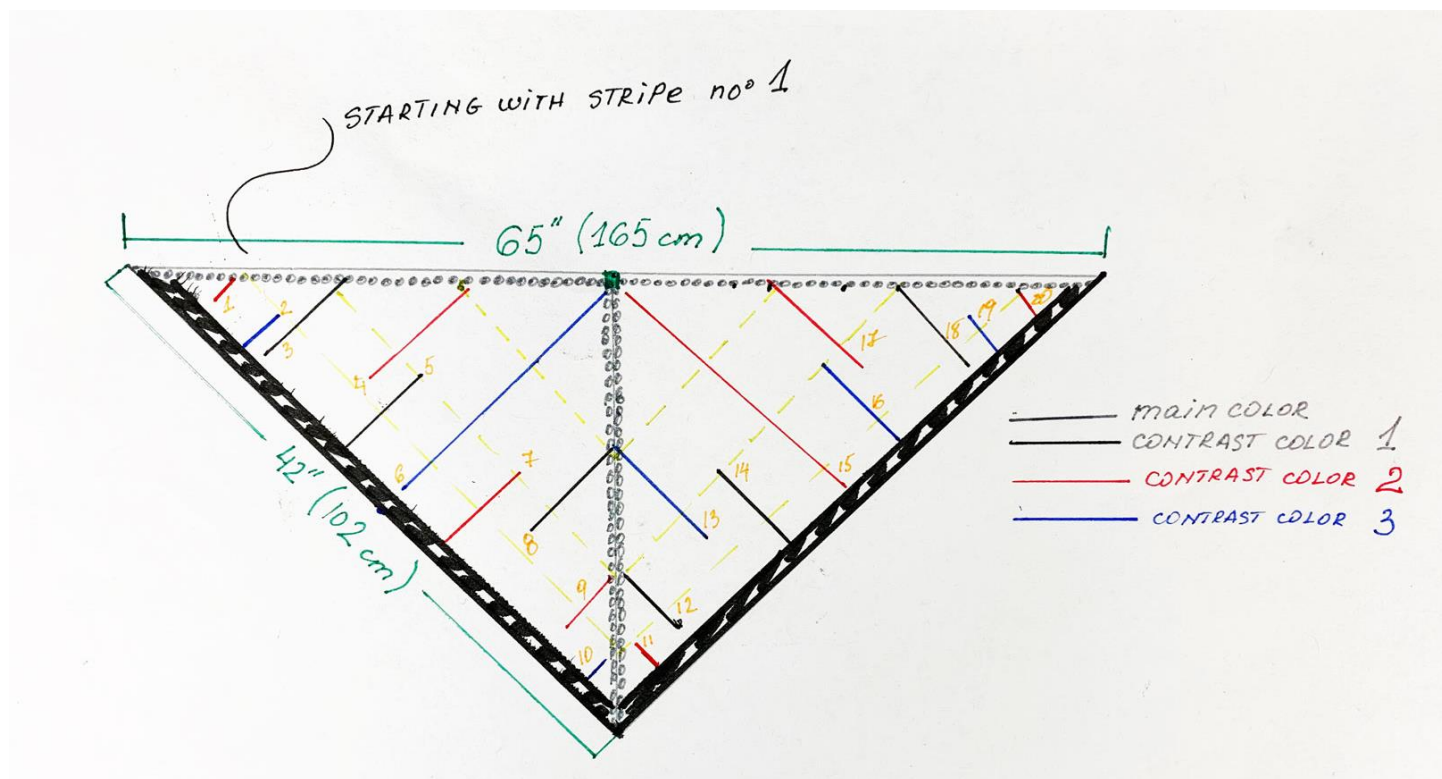 STARTING WITH STRIPE no° 1
65" (165 cm)
1
2
3
4
5
6
7
8
9
10
11
12
13
14
15
16
17
18
19
20
42" (102 cm)
main COLOR
CONTRAST COLOR 1
CONTRAST COLOR 2
CONTRAST COLOR 3